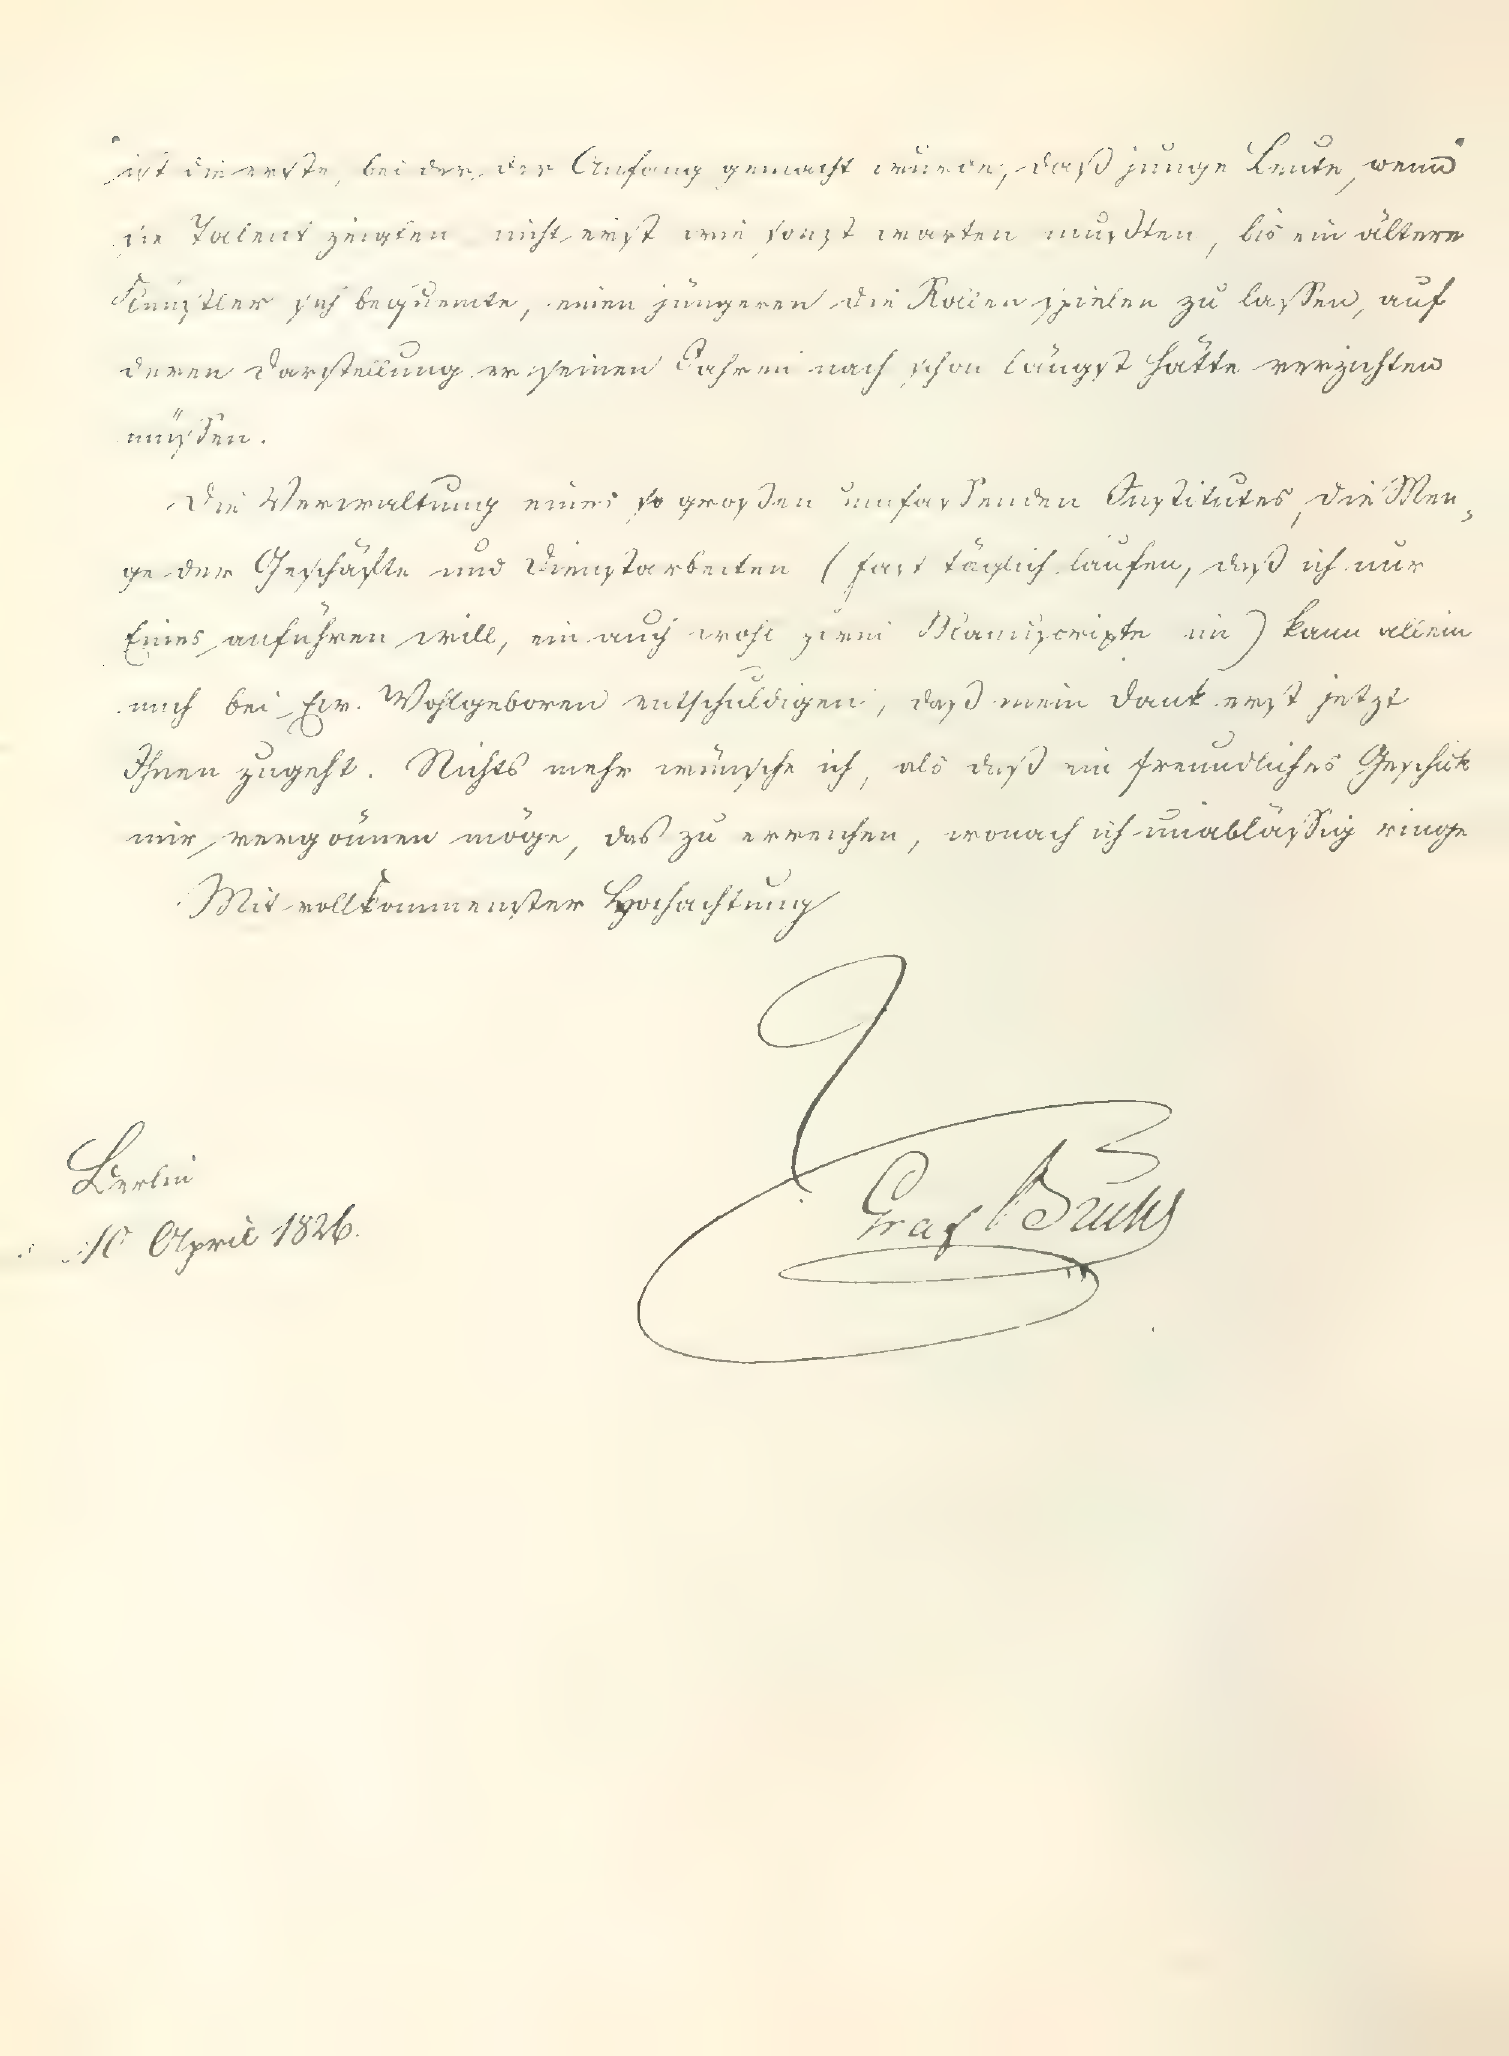 ist die erste, bei der der Anfang gemacht wurde, daß junge Leute, wenn
sie Talent zeigten nicht erst wie sonst warten mußten, bis ein ältere
Künstler sich bequemte, einen jüngeren die Rollen spielen zu lassen, auf
deren Darstellung er seinen Jahren nach schon längst hätte verzichten
müssen.
Die Verwaltung eines so großen umfassenden Institutes, die Men-
ge der Geschäfte und Dienstarbeiten (fast täglich laufen, daß ich nur
Eines anführen will, ein auch wohl zwei Manuscripte ein) kann allein
mich bei Ew. Wohlgeboren entschuldigen, daß mein Dank erst jetzt
Ihnen zugeht. Nichts mehr wünsche ich, als daß ein freundliches Geschick
mir vergönnen möge, das zu erreichen, wonach ich unablässig ringe
Mit vollkommenster Hochachtung
Graf Brühl
Berlin
10 April 1826.